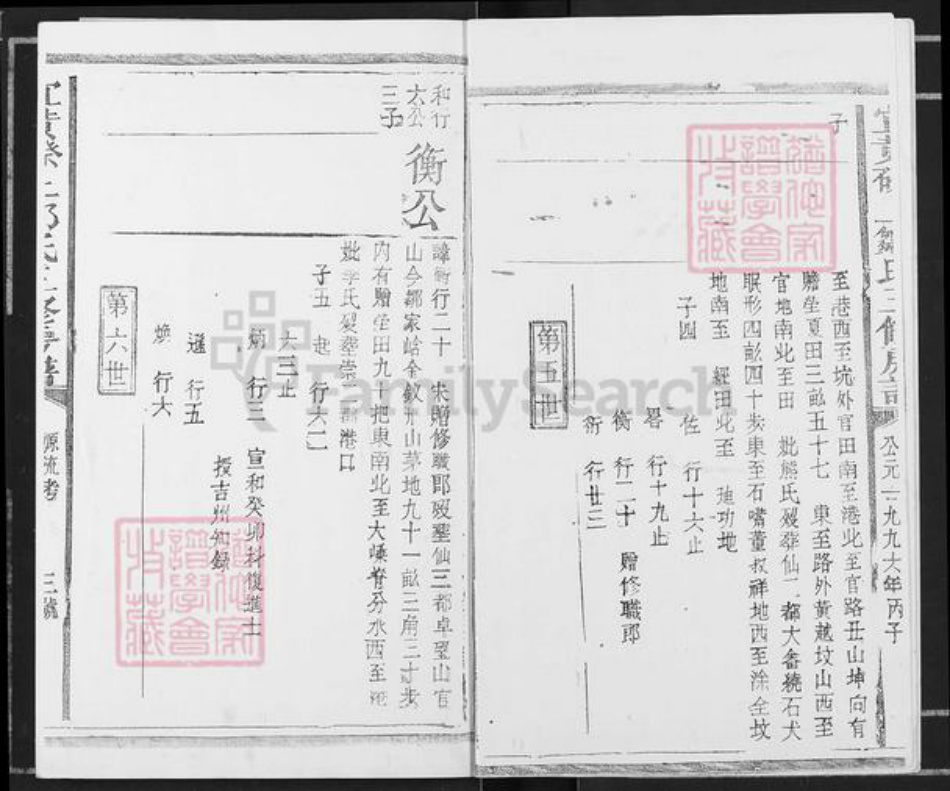 公元一九九六年丙子
子
至港西至坑外官田南至港北至官路丑山坤向有
贍塋夏田三畝五十七 東至路外黃越坟山西至
官地南北至田 妣熊氏歿葬仙二都大畬
眠形四畝四十步東至石嘴董叔祥地西至涂全坟
地南至 經田北至 地
子四 佐 行十六止
畧 行十九止
衡 行二十 贈修職郎
衎 行廿三
第五世
和行
六公
三子
衡公
諱衡行二十 宋贈修職郎歿塟仙三都卓望山官
山今鄒家 山茅地九十一畝三角三十步
內有贍塋田九 把東南北至大 脊分水西至港
妣李氏歿塟崇二都港口
子五 行六二
六三止
炳 行三 宣和癸卯科復進士
授吉州知錄
遜 行五
煥 行六
第六世
源流考
三號
FamilySearch